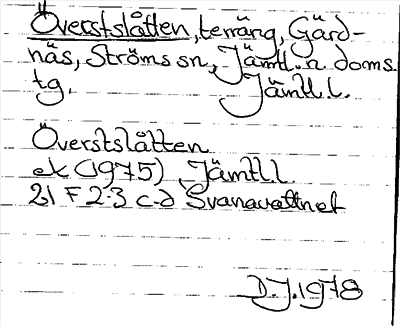 Överstslåtten, terräng, Gärd-
näs, Ströms sn, Jämtl. n. doms.
tg. Jämtl. l.
Överstslåtten
ek (1975) Jämtl l
21 F 2-3 c-d Svanavattnet
D.J. 1978